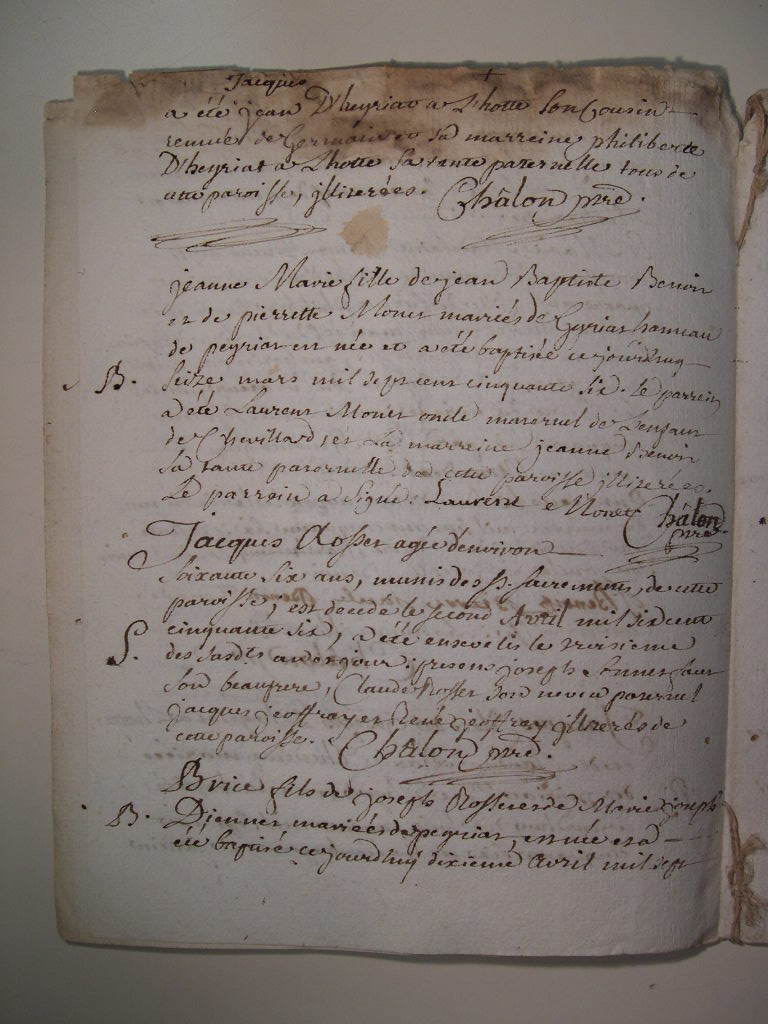 Jacques
a été jean D'heyriat a Lhotte Son Cousin
remué de Germain et sa marreine philiberte
D'heyriat a Lhotte Sa tante paternelle tous de
cette paroisse, illiterées. Châlon ptre.
jeanne Marie fille de jean Baptiste Benoit
et de pierrette Monet mariés de Gyriat hameau
de peyriat en née et a été baptisée ce jourdhuy
B. Seize mars mil sept cent cinquante six. Le parrein
a été Laurent Monet oncle maternel de Lenfant
de Chevillard, et La marreine jeanne Benoit
Sa tante paternelle de cette paroisse illiterée.
Le parrein a Signé. Laurent Monet Châlon
ptre.
Jacques Rosset agée d'environ
Soixante Six ans, munis des Sts. Sacrements, de cette
paroisse, est decedé le second Avril mil six cent
cinquante six, a été enseveli le troisieme
S. des susdts. an et jour: presens joseph
Son beaufrere, Claude Rosset Son neveu paternel
jacques jeoffray et René jeoffray illiterés de
cette paroisse. Châlon ptre.
Brice fils de joseph Rosset et de Marie joseph
B. mariéés de peyriat, en née et a
été baptisé ce jourdhuy dixieme Avril mil sept